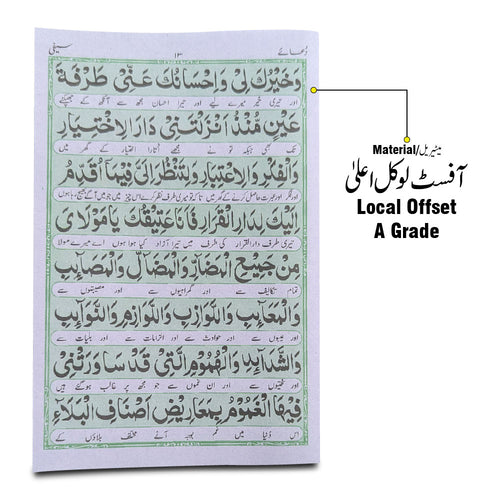 دُعائے ۱۳ سیفی
وَخَيْرَكَ لِىْ وَاِحْسَانَكَ عَنِّىْ طَرْفَةَ
اور تیری خیر میرے لیے اور تیرا احسان مجھ سے آنکھ کے جھپکنے
عَيْنٍ مُنْذُ اَنْزَلْتَنِىْ دَارَ الْاِخْتِيَارِ
تک بھی جبکہ تو نے مجھے اُتارا اختیار کے گھر میں
وَالْفِكْرِ وَالْاِعْتِبَارِ وَتَنْظُرَ اِلَىَّ فِيْمَا اُقَدِّمُ
اِلَيْكَ لِدَارِ الْقَرَارِ فَاَنَا عَتِيْقُكَ يَا مَوْلَاىَ
تیری طرف دار القرار کی طرف میں تیرا آزاد کیا ہوا ہوں اے میرے مولا
مِنْ جَمِيْعِ الْمَضَارِّ وَالْمَضَالِّ وَالْمَصَائِبِ
تمام تکالیف سے اور گمراہیوں سے اور مصیبتوں سے
وَالْمَعَائِبِ وَاللَّوَازِبِ وَاللَّوَازِمِ وَالنَّوَائِبِ
اور عیبوں سے اور حوادث سے اور الزامات سے اور بلیات سے
وَالشَّدَائِدِ وَالْهُمُوْمِ الَّتِىْ قَدْ سَاوَرَتْنِىْ
اور سختیوں سے اور ان غموں سے جو مجھ پر غالب ہو گئے ہیں
فِيْهَا الْغُمُوْمُ بِمَعَارِيْضِ اَصْنَافِ الْبَلَاءِ
اس دُنیا میں غم بوجہ آنے مختلف بلاؤں کے
Material/میٹیریل
آفسٹ لوکل اعلیٰ
Local Offset
A Grade